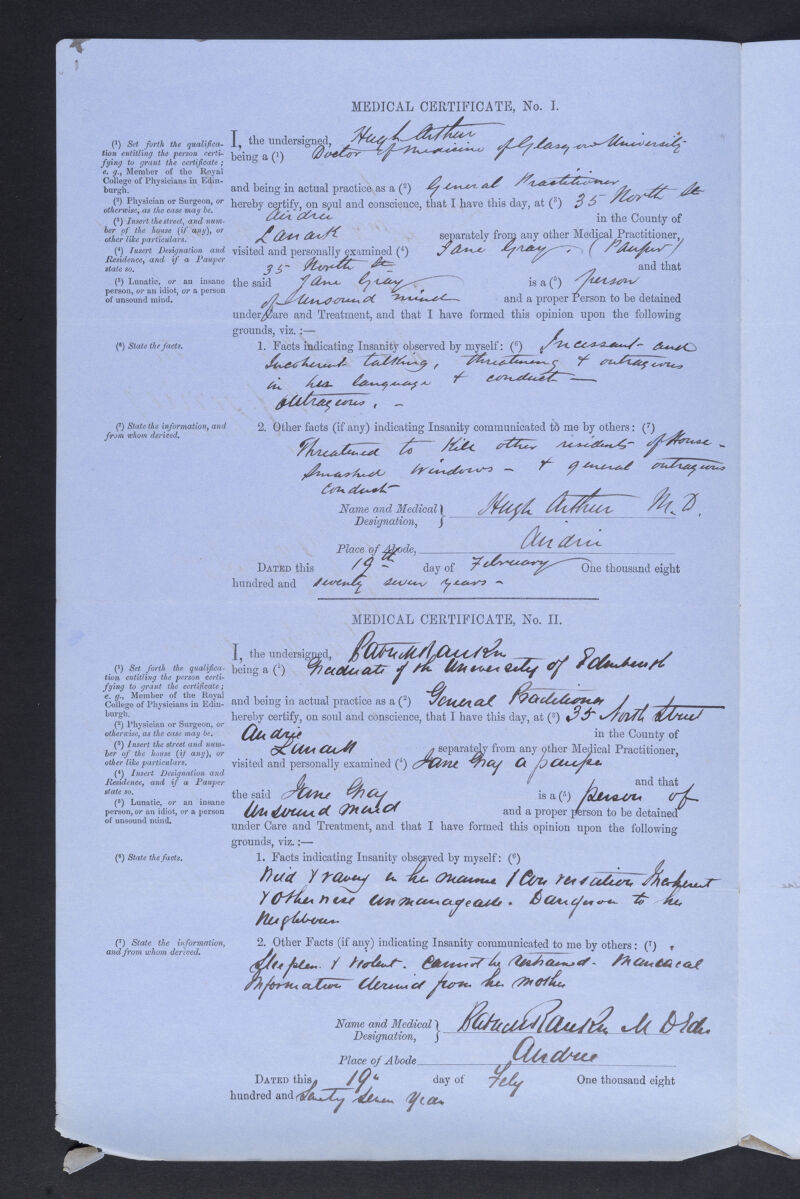 MEDICAL CERTIFICATE, No. I.
(1) Set forth the qualifica-
tion entitling the person certi-
fying to grant the certificate;
e. g., Member of the Royal
College of Physicians in Edin-
burgh.
(2) Physician or Surgeon, or
otherwise, as the case may be.
(3) Insert the street, and num-
ber of the house (if any), or
other like particulars.
(4) Insert Designation and
Residence, and if a Pauper
state so.
(5) Lunatic, or an insane
person, or an idiot, or a person
of unsound mind.
I, the undersigned, Hugh Arthur
being a (1) Doctor of Medicine of Glasgow University
and being in actual practice as a (2) General Practitioner
hereby certify, on soul and conscience, that I have this day, at (3) 35 North St
Airdrie in the County of
Lanark separately from any other Medical Practitioner,
visited and personally examined (4) Jane Gray. (Pauper)
35 North St and that
the said Jane Gray is a (5) person
of Unsound mind and a proper Person to be detained
under Care and Treatment, and that I have formed this opinion upon the following
grounds, viz. :—
(6) State the facts.
1. Facts indicating Insanity observed by myself: (6) Incessant and
Incoherent talking, threatening & outrageous
in her language & conduct —
outrageous. -
(7) State the information, and
from whom derived.
2. Other facts (if any) indicating Insanity communicated to me by others: (7)
Threatened to Kill other residents of House -
Smashed Windows - & general outrageous
conduct
Name and Medical Designation, } Hugh Arthur M.D.
Place of Abode, Airdrie
DATED this 19th day of February One thousand eight
hundred and seventy seven years -
MEDICAL CERTIFICATE, No. II.
(1) Set forth the qualifica-
tion entitling the person certi-
fying to grant the certificate;
e. g., Member of the Royal
College of Physicians in Edin-
burgh.
(2) Physician or Surgeon, or
otherwise, as the case may be.
(3) Insert the street and num-
ber of the house (if any), or
other like particulars.
(4) Insert Designation and
Residence, and if a Pauper
state so.
(5) Lunatic, or an insane
person, or an idiot, or a person
of unsound mind.
I, the undersigned, Patrick Rankin
being a (1) Graduate of the University of Edinburgh
and being in actual practice as a (2) General Practitioner
hereby certify, on soul and conscience, that I have this day, at (3) 35 North Street
Airdrie in the County of
Lanark separately from any other Medical Practitioner,
visited and personally examined (4) Jane Gray a pauper
and that
the said Jane Gray is a (5) person of
Unsound mind and a proper person to be detained
under Care and Treatment, and that I have formed this opinion upon the following
grounds, viz. :—
(6) State the facts.
1. Facts indicating Insanity observed by myself: (6)
Wild & raving in her manner & conversation Incoherent
& otherwise unmanageable. Dangerous to her
Neighbours
(7) State the information,
and from whom derived.
2. Other Facts (if any) indicating Insanity communicated to me by others: (7)
Sleepless & violent. Cannot be restrained. Maniacal
Information derived from her mother
Name and Medical Designation, } Patrick Rankin M D Edn
Place of Abode Airdrie
DATED this 19th day of Feby One thousand eight
hundred and Seventy Seven Year